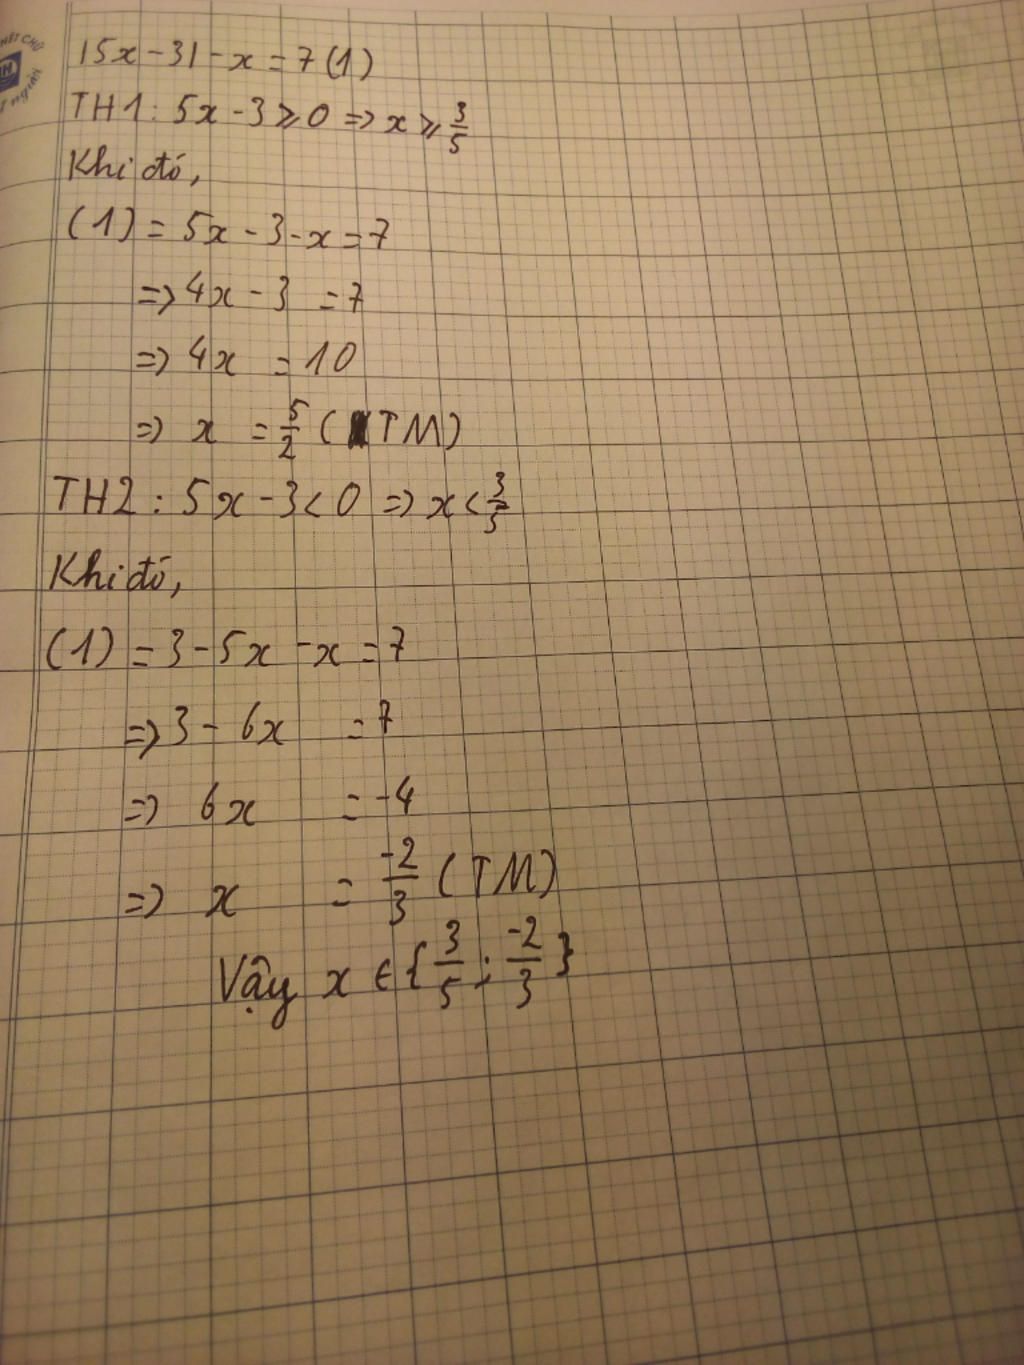 NÉT CHỮ
NH
người
|5x-3|-x=7(1)
TH1: 5x-3⩾0 => x⩾3/5
Khi đó,
(1) = 5x-3-x=7
=> 4x-3 =7
=> 4x =10
=> x =5/2 (TM)
TH2: 5x-3<0 => x<3/5
Khi đó,
(1) = 3-5x-x=7
=> 3-6x =7
=> 6x =-4
=> x = -2/3 (TM)
Vậy x ∈ {3/5; -2/3}